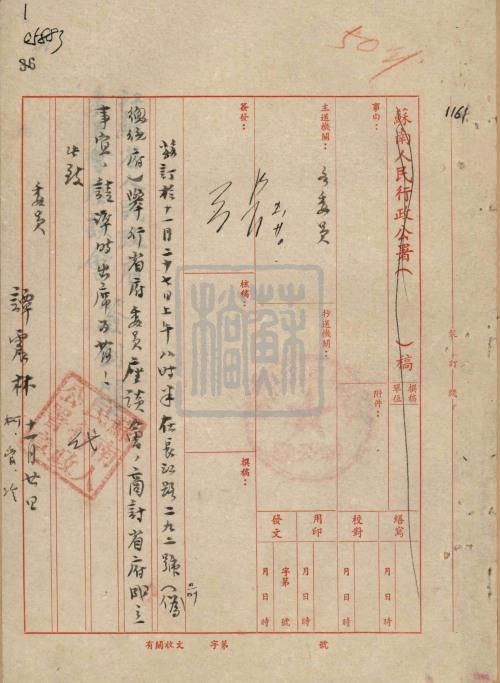 1
25883
36
50
1161
蘇南人民行政公署( )稿
裝訂線
事由:
主送機關:
各委員
抄送機關:
附件:
撰稿單位
簽發:
核稿:
撰稿:
繕寫
校對
用印
發文
月 日 時
月 日 時
月 日 時
字第 號
月 日 時
茲訂於十一月二十七日上午八時半在長江路二九二號(偽
總統府)舉行省府委員座談會,商討省府成立
事宜,請準時出席為荷。
此致
委員
譚震林
代
十一月廿日
柯 管 冷
有關收文 字第 號
蘇檔